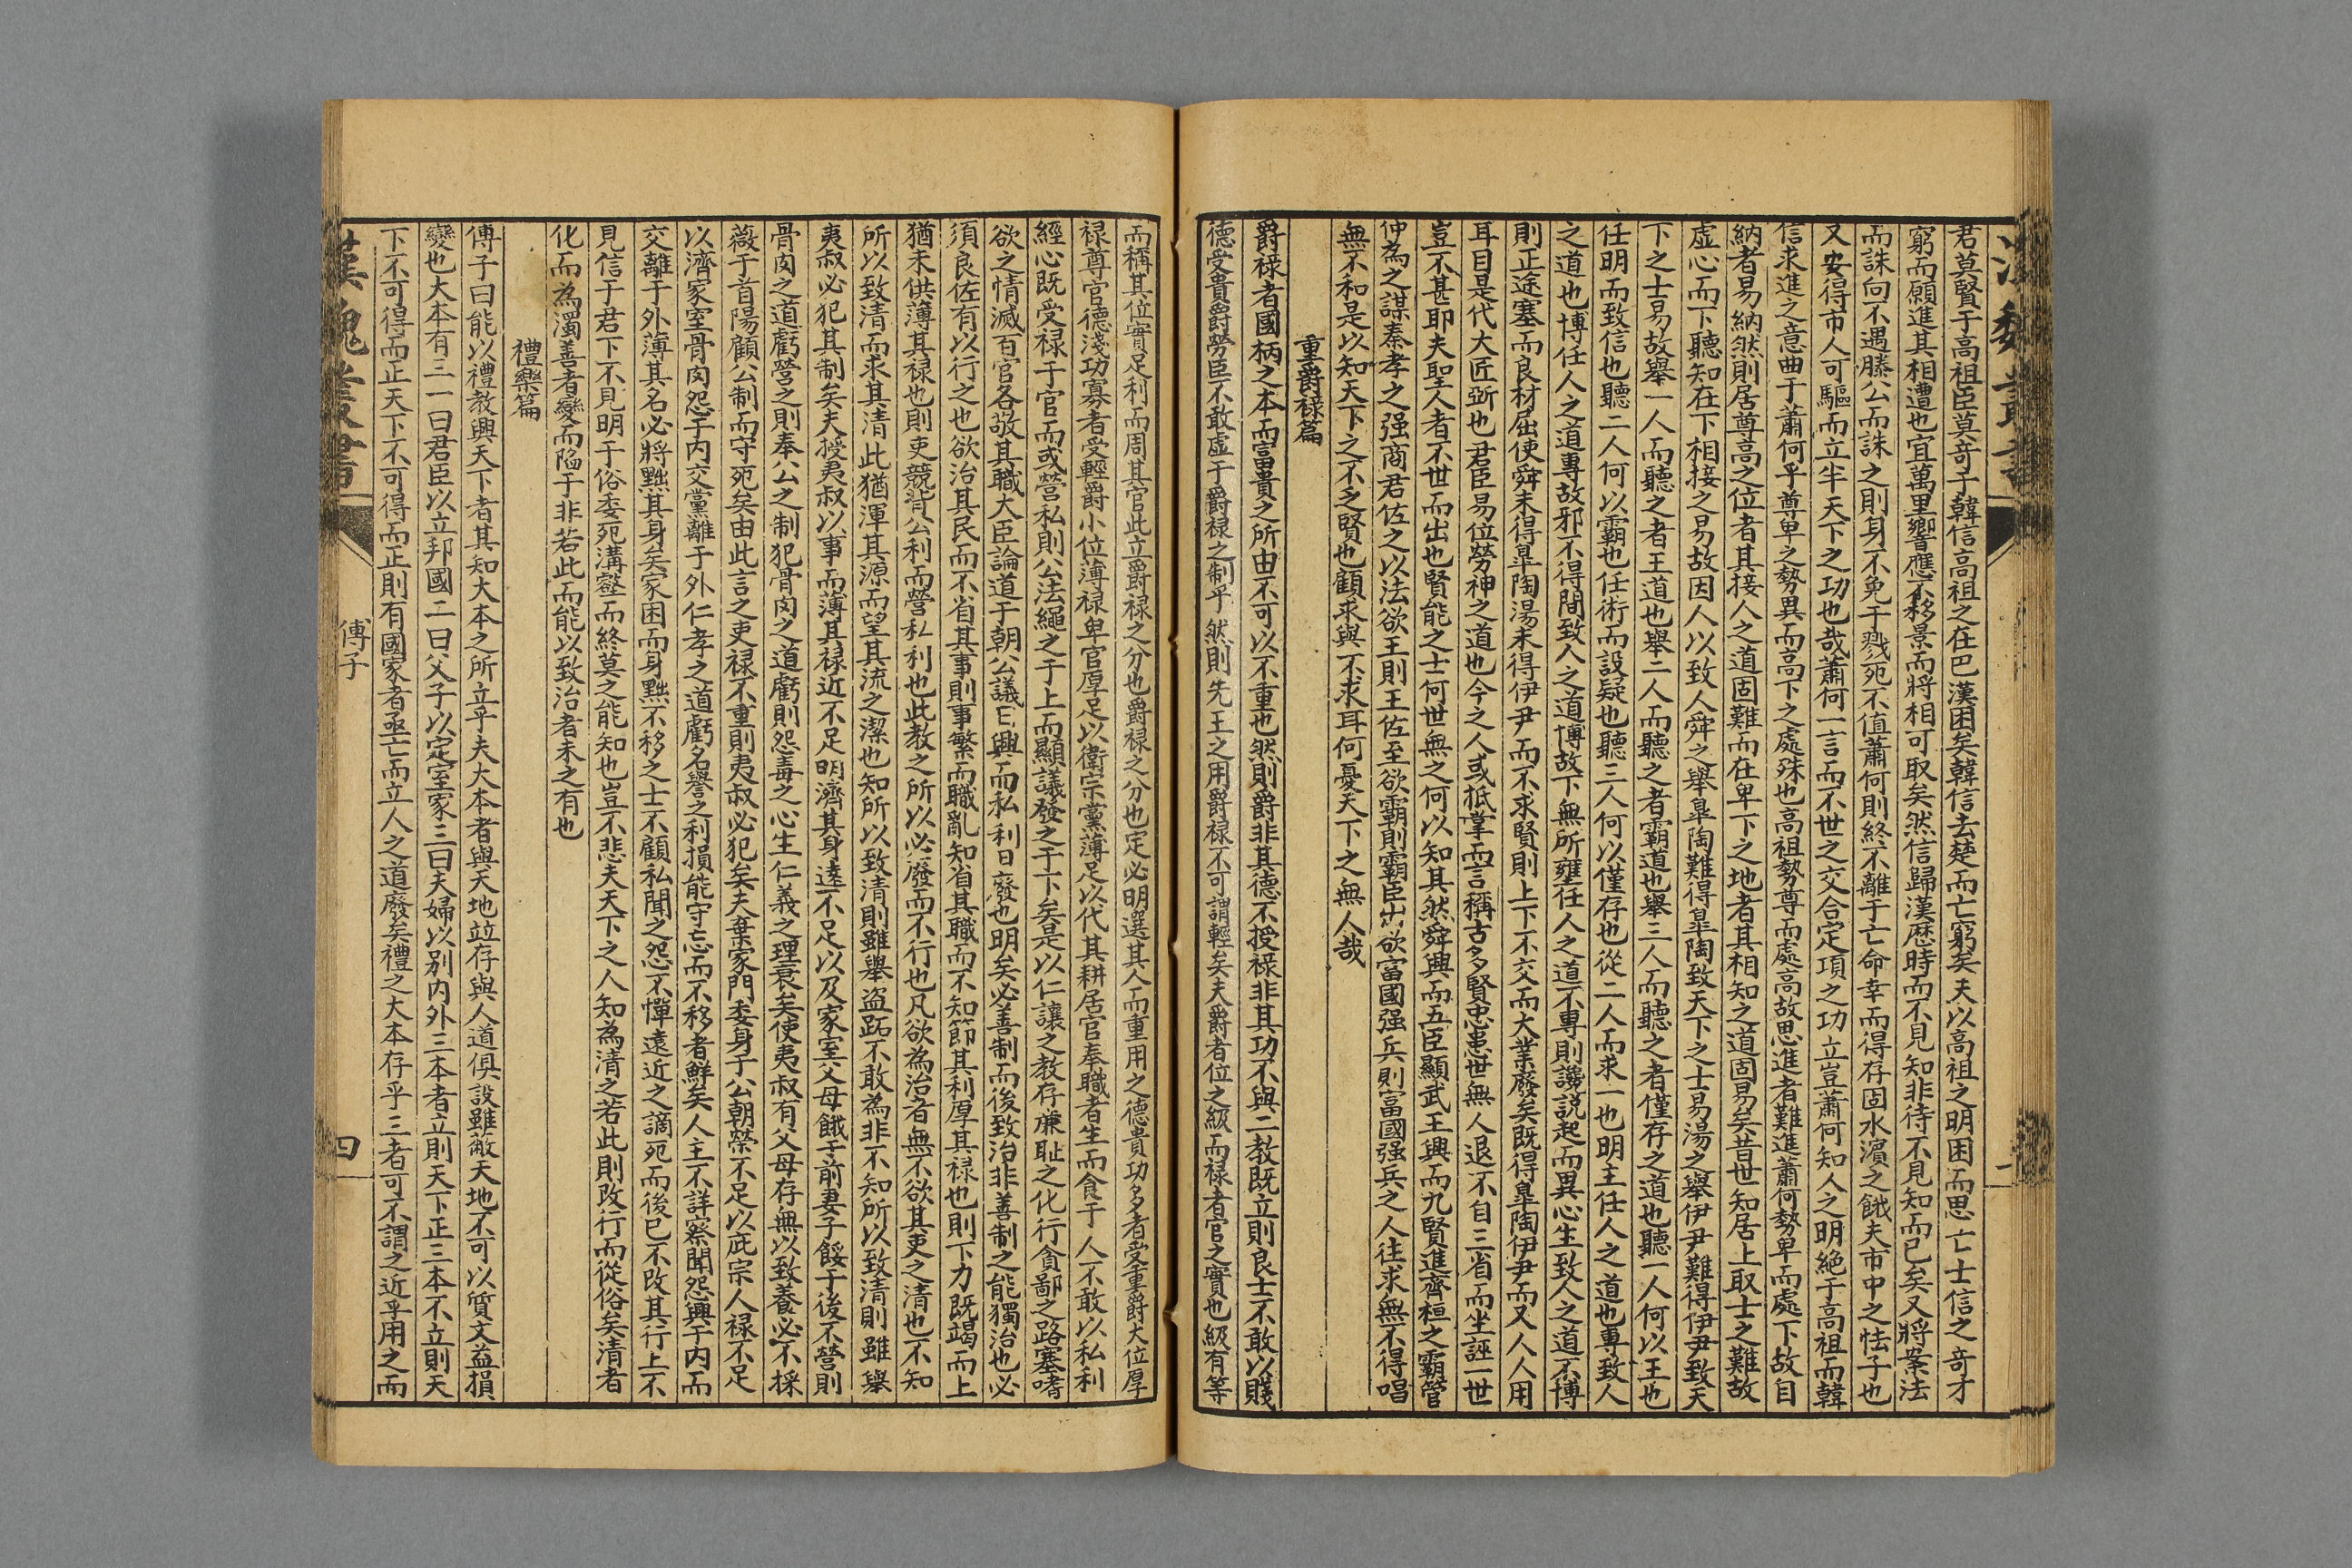 漢魏叢書
二
君莫賢于高祖臣莫奇于韓信高祖之在巴漢困矣韓信去楚而亡窮矣夫以高祖之明困而思亡士信之奇才
窮而願進其相遭也宜萬里響應不移景而將相可取矣然信歸漢歷時而不見知非待不見知而已矣又將案法
而誅向不遇滕公而誅之則身不免于戮死不值蕭何則終不離于亡命幸而得存固水濱之餓夫市中之怯子也
又安得市人可驅而立半天下之功也哉蕭何一言而不世之交合定項之功立豈蕭何知人之明絶于高祖而韓
信求進之意曲于蕭何乎尊卑之勢異而高下之處殊也高祖勢尊而處高故思進者難進蕭何勢卑而處下故自
納者易納然則居尊高之位者其接人之道固難而在卑下之地者其相知之道固易矣昔世知居上取士之難故
虛心而下聽知在下相接之易故因人以致人舜之舉皐陶難得皐陶致天下之士易湯之舉伊尹難得伊尹致天
下之士易故舉一人而聽之者王道也舉二人而聽之者霸道也舉三人而聽之者僅存之道也聽一人何以王也
任明而致信也聽二人何以霸也任術而設疑也聽三人何以僅存也從二人而求一也明主任人之道也專致人
之道也博任人之道專故邪不得間致人之道博故下無所壅任人之道不專則讒説起而異心生致人之道不博
則正途塞而良材屈使舜未得皐陶湯未得伊尹而不求賢則上下不交而大業廢矣既得皐陶伊尹而又人人用
耳目是代大匠斵也君臣易位勞神之道也今之人或抵掌而言稱古多賢忠恚世無人退不自三省而坐誣一世
豈不甚耶夫聖人者不世而出也賢能之士何世無之何以知其然舜興而五臣顯武王興而九賢進齊桓之霸管
仲為之謀秦孝之强商君佐之以法欲王則王佐至欲霸則霸臣出欲富國强兵則富國强兵之人往求無不得唱
無不和是以知天下之不乏賢也顧求與不求耳何憂天下之無人哉
重爵祿篇
爵祿者國柄之本而富貴之所由不可以不重也然則爵非其德不授祿非其功不與二教既立則良士不敢以賤
德受貴爵勞臣不敢虛于爵祿之制乎然則先王之用爵祿不可謂輕矣夫爵者位之級而祿者官之實也級有等
而稱其位實足利而周其官此立爵祿之分也爵祿之分也定必明選其人而重用之德貴功多者受重爵大位厚
祿尊官德淺功寡者受輕爵小位薄祿卑官厚足以衛宗黨薄足以代其耕居官奉職者坐而食于人不敢以私利
經心既受祿于官而或營私則公法繩之于上而顯議發之于下矣是以仁讓之教存亷耻之化行貪鄙之路塞嗜
欲之情滅百官各敬其職大臣論道于朝公議日興而私利日廢也明矣必善制而後致治非善制之能獨治也必
須良佐有以行之也欲治其民而不省其事則事繁而職亂知省其職而不知節其利厚其祿也則下力既竭而上
猶未供薄其祿也則吏競背公利而營私利也此教之所以必廢而不行也凡欲為治者無不欲其吏之清也不知
所以致清而求其清此猶渾其源而望其流之潔也知所以致清則雖舉盜跖不敢為非不知所以致清則雖舉
夷叔必犯其制矣夫授夷叔以事而薄其祿近不足明濟其身遠不足以及家室父母餓于前妻子餒于後不營則
骨肉之道虧營之則奉公之制犯骨肉之道虧則怨毒之心生仁義之理衰矣使夷叔有父母存無以致養必不採
薇于首陽顧公制而守死矣由此言之吏祿不重則夷叔必犯矣夫棄家門委身于公朝榮不足以庇宗人祿不足
以濟家室骨肉怨于内交黨離于外仁孝之道虧名譽之利損能守忘而不移者鮮矣人主不詳察聞怨興于内而
交離于外薄其名必將黜其身矣家困而身黜不移之士不顧私聞之怨不憚遠近之謫死而後已不改其行上不
見信于君下不見明于俗委死溝壑而終莫之能知也豈不悲夫天下之人知為清之若此則改行而從俗矣清者
化而為濁善者變而陥于非若此而能以致治者未之有也
禮樂篇
傅子曰能以禮教興天下者其知大本之所立乎夫大本者與天地竝存與人道俱設雖蔽天地不可以質文益損
變也大本有三一曰君臣以立邦國二曰父子以定室家三曰夫婦以别内外三本者立則天下正三本不立則天
下不可得而正天下不可得而正則有國家者亟亡而立人之道廢矣禮之大本存乎三者可不謂之近乎用之而
漢魏叢書
傅子
四